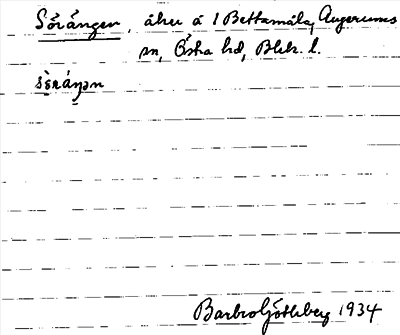 Sörängen, åker å 1 Bettamåla, Augerums
sn, Östra hd, Blek. l.
sè̀ráŋən
Barbro Götlberg 1934